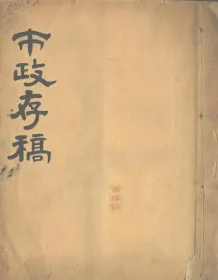 市政存稿